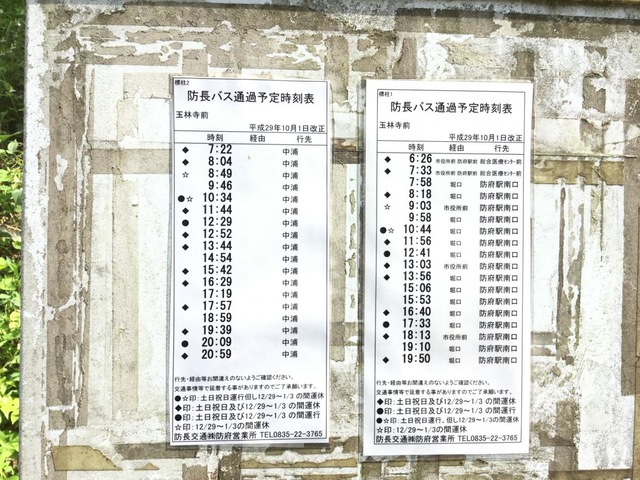 標柱2
防長バス通過予定時刻表
玉林寺前
平成29年10月1日改正
時刻 経由 行先
◆ 7:22 中浦
◆ 8:04 中浦
☆ 8:49 中浦
9:46 中浦
●☆ 10:34 中浦
◆ 11:44 中浦
● 12:29 中浦
◆ 12:52 中浦
◆ 13:44 中浦
14:54 中浦
◆ 15:42 中浦
◆ 16:29 中浦
17:19 中浦
◆ 17:57 中浦
18:59 中浦
◆ 19:39 中浦
● 20:09 中浦
◆ 20:59 中浦
行先・経由等お間違えのないようご確認ください。
交通事情等で延着する事がありますのでご了承願います。
●☆印:土日祝日運行但し12/29~1/3の間運休
◆印:土日祝日及び12/29~1/3の間運休
●印:土日祝日及び12/29~1/3の間運行
☆印:12/29~1/3の間運休
防長交通㈱防府営業所 TEL0835-22-3765
標柱1
防長バス通過予定時刻表
玉林寺前
平成29年10月1日改正
時刻 経由 行先
◆ 6:26 市役所前 防府駅前 総合医療センター前
◆ 7:33 市役所前 防府駅前 総合医療センター前
7:58 堀口 防府駅南口
◆ 8:18 堀口 防府駅南口
☆ 9:03 市役所前 防府駅南口
9:58 堀口 防府駅南口
●☆ 10:44 堀口 防府駅南口
◆ 11:56 堀口 防府駅南口
● 12:41 堀口 防府駅南口
◆ 13:03 市役所前 防府駅南口
◆ 13:56 堀口 防府駅南口
15:06 堀口 防府駅南口
15:53 堀口 防府駅南口
◆ 16:40 堀口 防府駅南口
● 17:33 堀口 防府駅南口
◆ 18:13 市役所前 防府駅南口
19:10 堀口 防府駅南口
◆ 19:50 堀口 防府駅南口
行先・経由等お間違えのないようご確認ください。
交通事情等で延着する事がありますのでご了承願います。
◆印:土日祝日及び12/29~1/3の間運休
●印:土日祝日及び12/29~1/3の間運行
●☆印:土日祝日運行、但し12/29~1/3の間運休
☆印:12/29~1/3の間運休
防長交通㈱防府営業所 TEL0835-22-3765